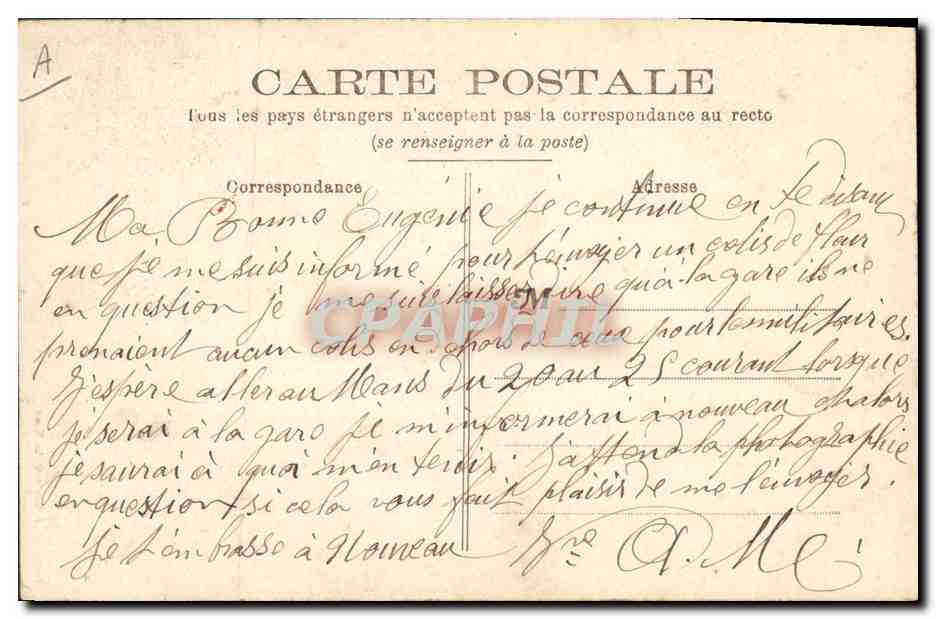 A
CARTE POSTALE
Tous les pays étrangers n'acceptent pas la correspondance au recto
(se renseigner à la poste)
Correspondance
Adresse
Ma Bonne Eugénie je continue en te disant
que je me suis informé pour t'envoyer un colis de fleur
en question je me suis laissé dire qu'à la gare ils ne
prenaient aucun colis en dehors de ceux pour les militaires.
J'espère aller au Mans du 20 au 25 courant lorsque
je serai à la gare je m'informerai à nouveau et alors
je saurai à quoi m'en tenir. J'attend la photographie
en question si cela vous fait plaisir de me l'envoyer.
Je t'embrasse à Nouveau
M
CPAPHIL